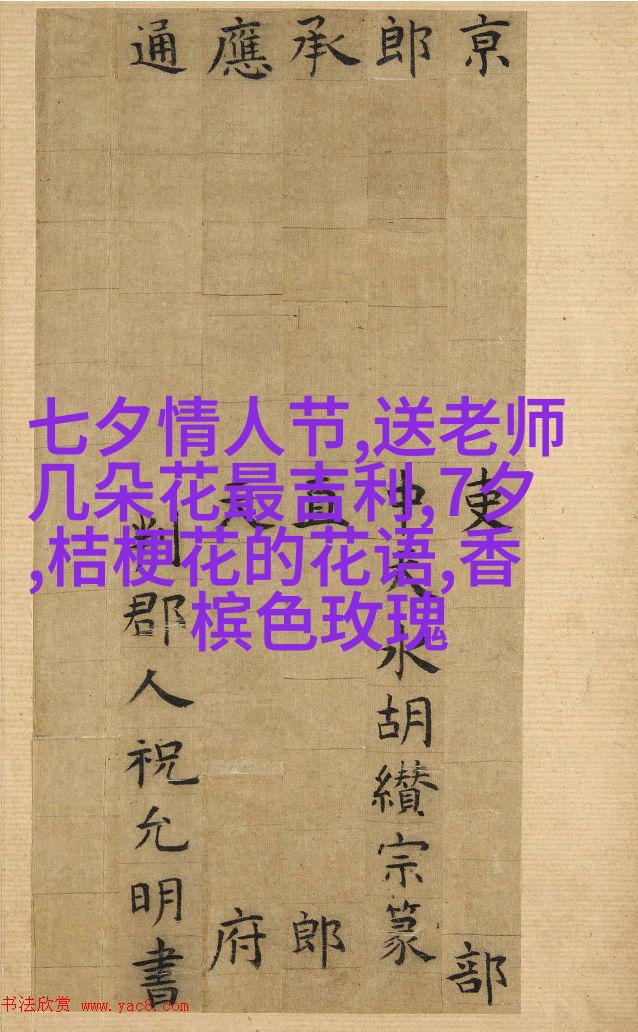 京吏部
郎中天水胡纘宗篆
承直郎
應天府
通判郡人祝允明書
七夕情人节,送老师
几朵花最吉利,7夕
,桔梗花的花语,香
槟色玫瑰
书法欣赏 www.yac8.com